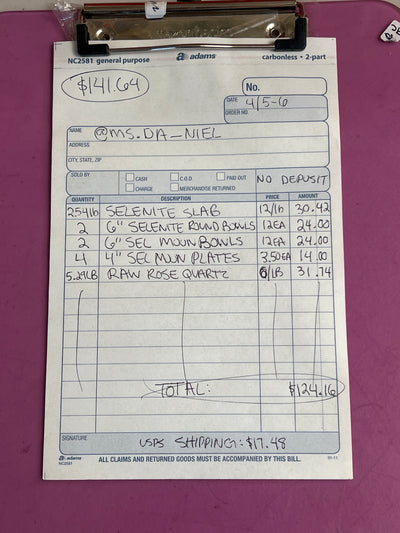 NC2581 general purpose adams carbonless • 2-part
$141.64
No.
DATE 4/5-6
ORDER NO.
NAME @MS.DA_NIEL
ADDRESS
CITY, STATE, ZIP
SOLD BY CASH C.O.D PAID OUT NO DEPOSIT
CHARGE MERCHANDISE RETURNED
QUANTITY DESCRIPTION PRICE AMOUNT
2.54lb SELENITE SLAB 12/lb 30.42
2 6" SELENITE ROUND BOWLS 12EA 24.00
2 6" SEL MOON BOWLS 12EA 24.00
4 4" SEL MOON PLATES 3.50EA 14.00
5.29LB RAW ROSE QUARTZ 6/LB 31.74
TOTAL: $124.16
SIGNATURE USPS SHIPPING: $17.48
adams
NC2581 ALL CLAIMS AND RETURNED GOODS MUST BE ACCOMPANIED BY THIS BILL.